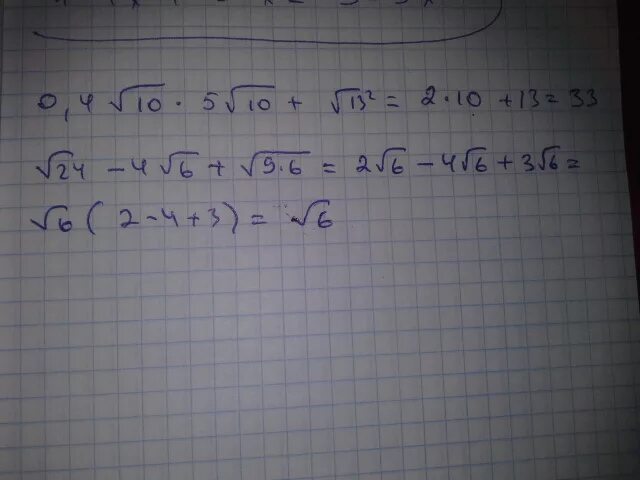 0,4 √10 · 5 √10 + √13² = 2 · 10 + 13 = 33
√24 - 4 √6 + √9·6 = 2√6 - 4√6 + 3√6 =
√6 ( 2 - 4 + 3 ) = √6